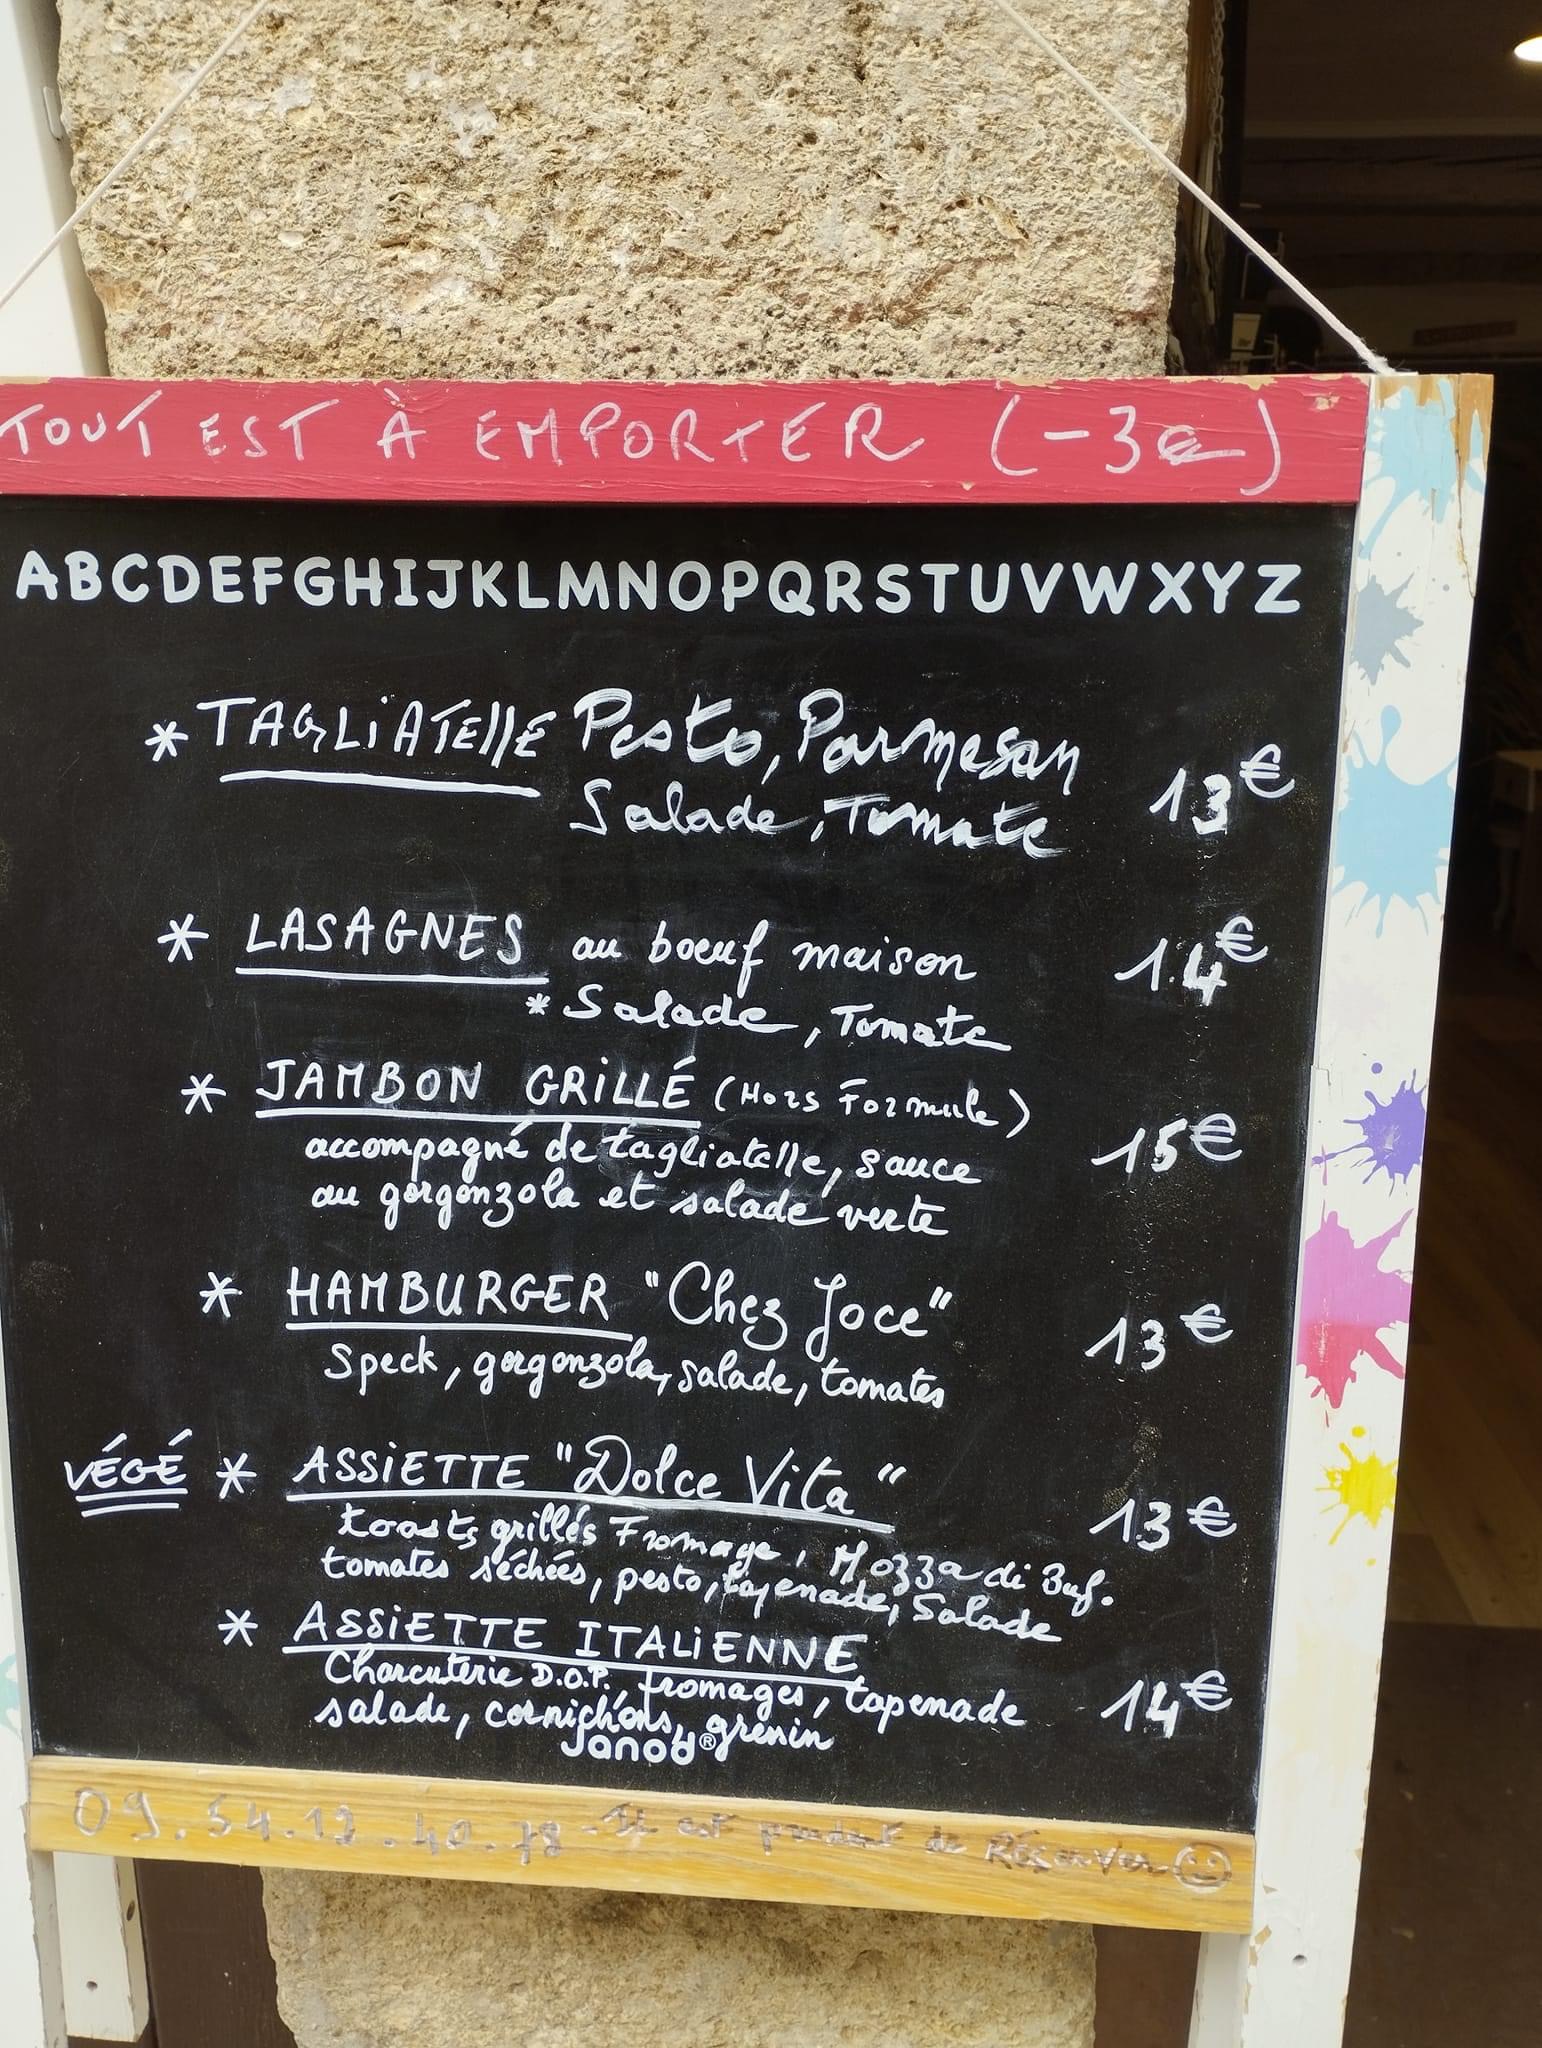 TOUT EST À EMPORTER (-3€)
ABCDEFGHIJKLMNOPQRSTUVWXYZ
* TAGLiATEllE Pesto, Parmesan 13€
Salade, Tomate
* LASAGNES au boeuf maison 14€
* Salade, Tomate
* JAMBON GRiLLÉ (Hors Formule) 15€
accompagné de tagliatelle, sauce
au gorgonzola et salade verte
* HAMBURGER "Chez Joce" 13€
Speck, gorgonzola, salade, tomates
VÉGÉ * ASSiETTE "Dolce Vita" 13€
toasts grillés Fromage, Mozza di Buf.
tomates séchées, pesto, tapenade, Salade
* ASSiETTE ITALiENNE 14€
Charcuterie D.O.P. fromages, tapenade
salade, cornichons, gressin
Janod®
09.54.12.40.78 - Il est prudent de Réserver